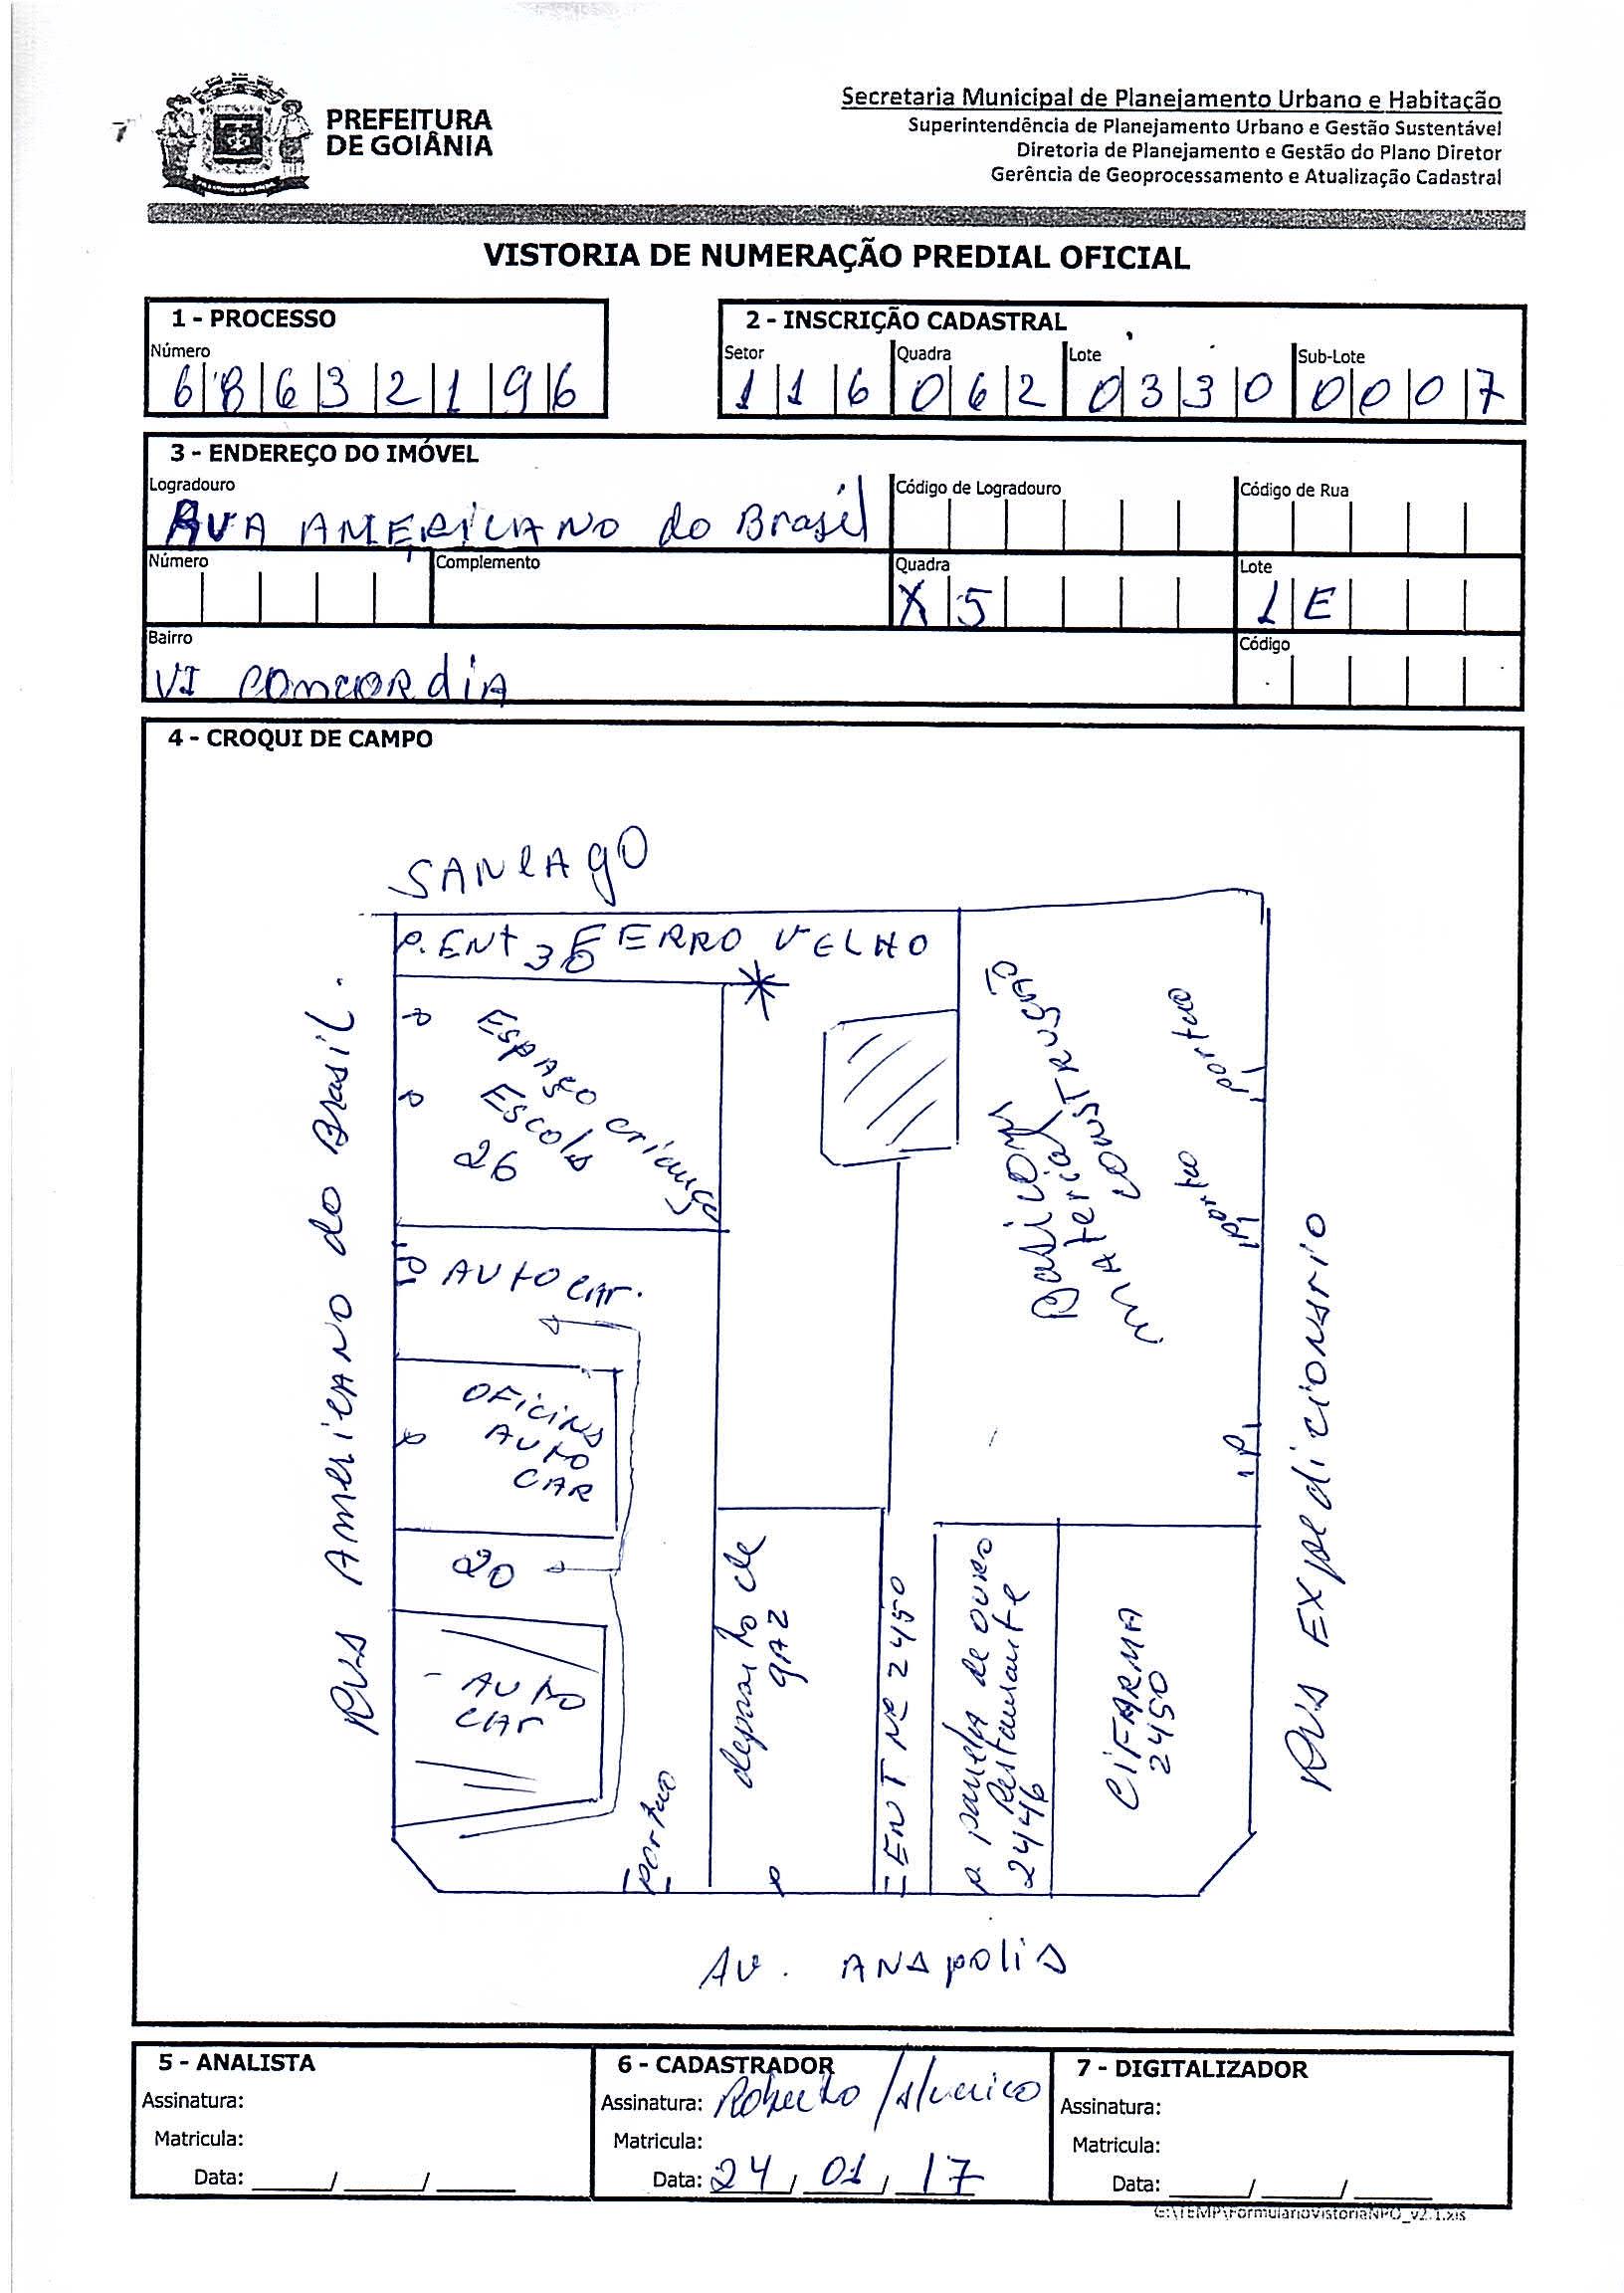 PREFEITURA
DE GOIÂNIA
Secretaria Municipal de Planejamento Urbano e Habitação
Superintendência de Planejamento Urbano e Gestão Sustentável
Diretoria de Planejamento e Gestão do Plano Diretor
Gerência de Geoprocessamento e Atualização Cadastral
VISTORIA DE NUMERAÇÃO PREDIAL OFICIAL
1 - PROCESSO
Número
6 8 6 3 2 1 9 6
2 - INSCRIÇÃO CADASTRAL
Setor Quadra Lote Sub-Lote
1 1 6 0 6 2 0 3 3 0 0 0 0 7
3 - ENDEREÇO DO IMÓVEL
Logradouro Código de Logradouro Código de Rua
RUA AMERICANO do Brasil
Número Complemento Quadra Lote
X 5 1 E
Bairro Código
VI CONCORDIA
4 - CROQUI DE CAMPO
SANCAGO
P. ENT 36 FERRO VELHO
Espaço criança
Escola
26
AUTO CAR.
OFICINA
AUTO
CAR
20
- AUTO
CAR
portao
deposito de
gAZ
ENT NR 2450
panela de ouro
Restaurante
2446
CIFARMA
2450
Basicom
material
CONSTRUÇÃO
portao
portao
P
Rua Americano do Brasil.
Rua Expedicionario
Av. ANApolis
5 - ANALISTA
Assinatura:
Matricula:
Data: ____/____/____
6 - CADASTRADOR
Assinatura: Roberto /
Matricula:
Data: 24/01/17
7 - DIGITALIZADOR
Assinatura:
Matricula:
Data: ____/____/____
G:\TEMP\FormularioVistoriaNPO_v2.1.xls